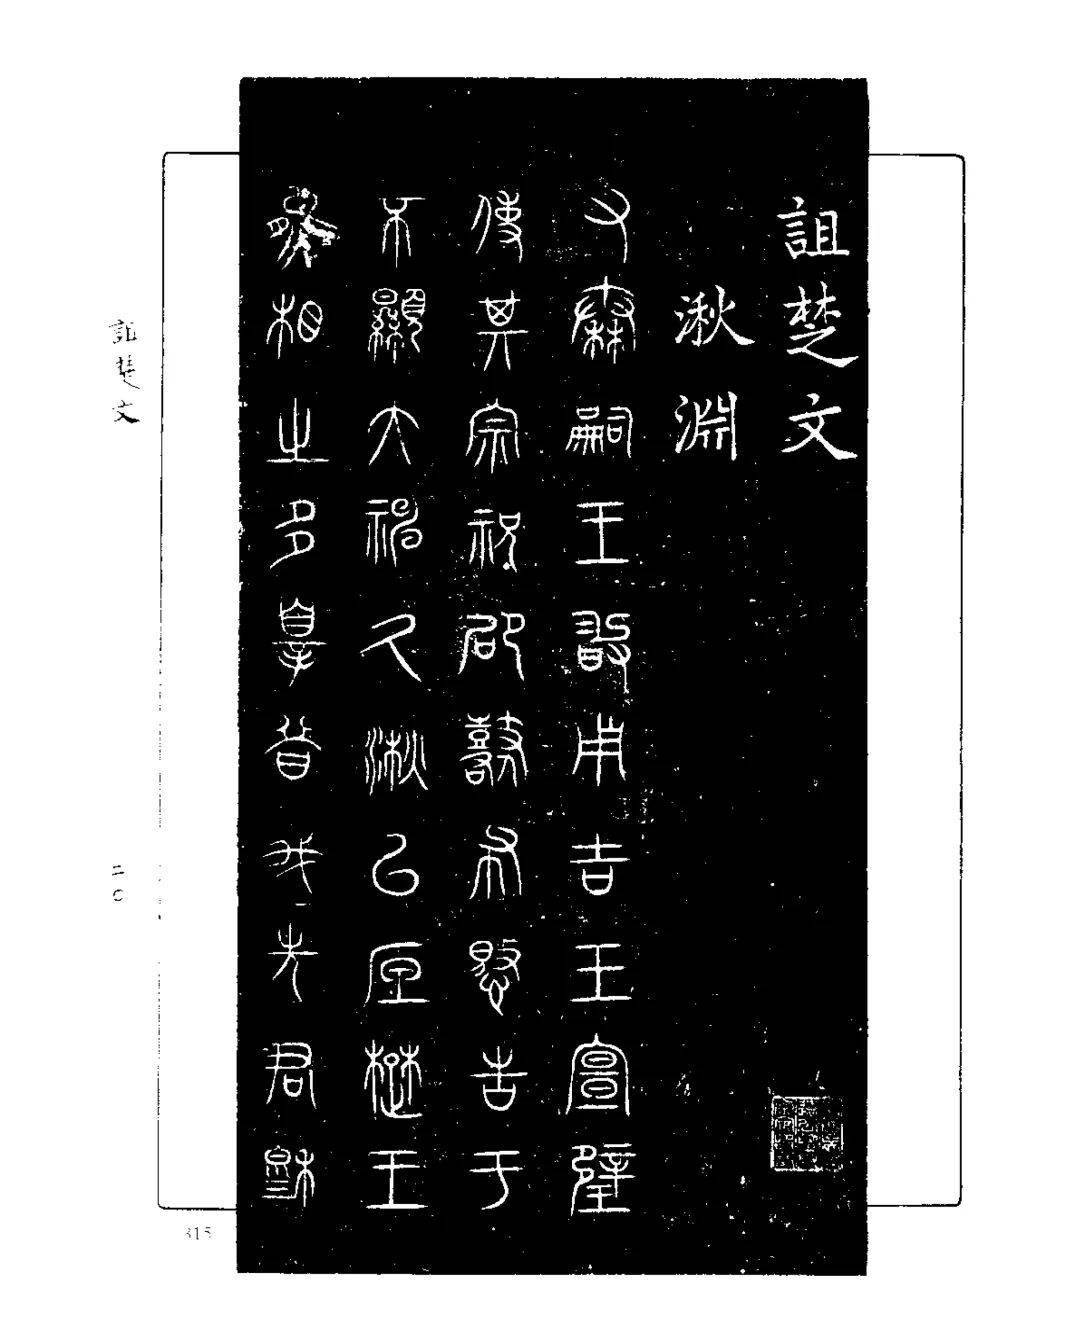 詛楚文
湫淵
又秦嗣王敢用吉玉宣璧
使其宗祝邵鼛布愍告于
不顯大神久湫以底楚王
熊相之多辠昔我先君穆
詛楚文
二〇
315